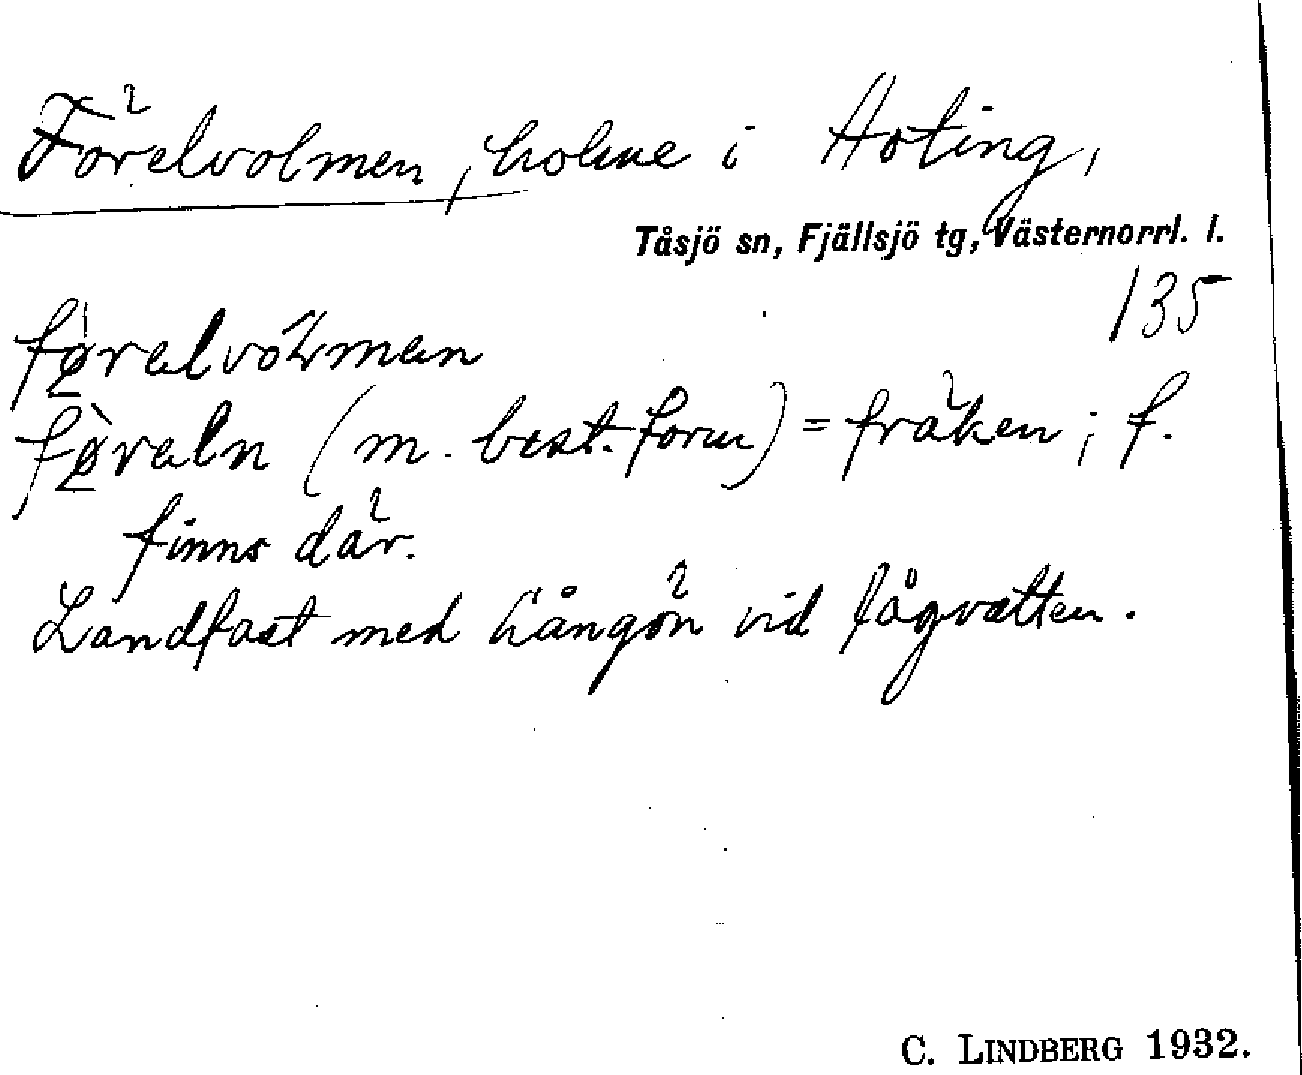 Förelvolmen, holme i Hoting,
Tåsjö sn, Fjällsjö tg, Västernorrl. l.
135
fö̀ralvóḷman
fö̀raln (m. best. form) = fräken; f.
finns där.
Landfast med Långön vid lågvatten.
C. LINDBERG 1932.